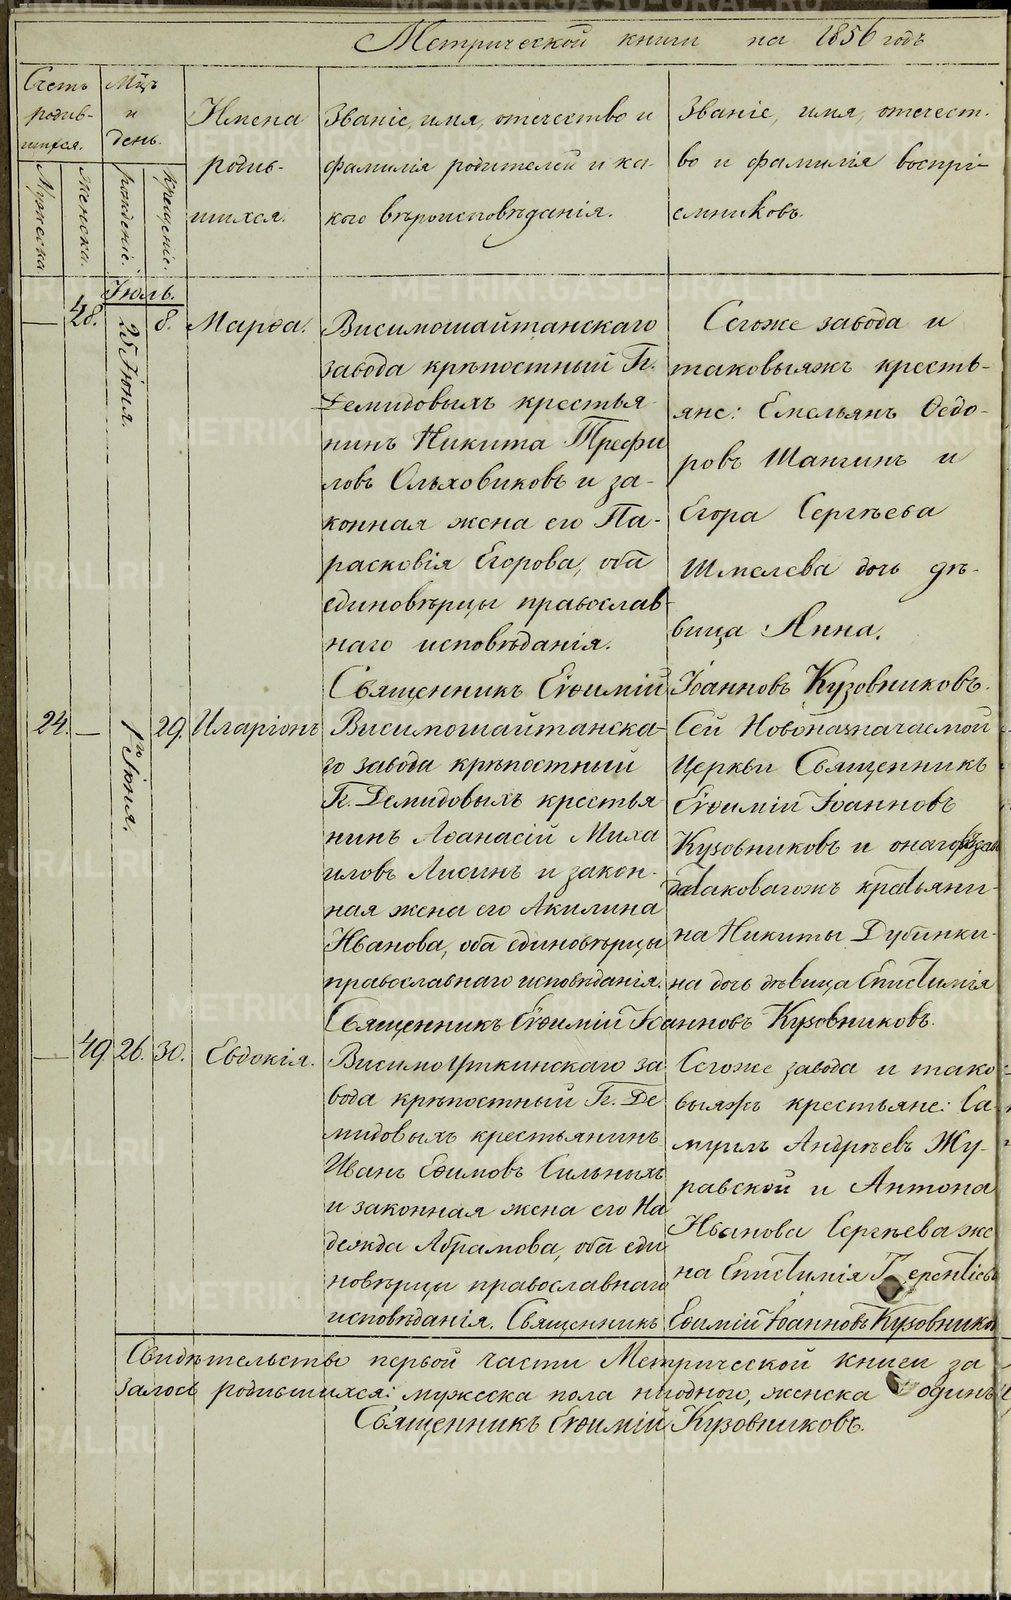 Метрической книги на 1856 годъ
Счетъ родив-шихся.
Мужеска
Женска.
Мцъ и день.
рожденіе.
крещеніе.
Имена
родив-
шихся.
Званіе, имя, отчество и
фамилія родителей и ка-
кого вѣроисповѣданія.
Званіе, имя, отчест-
во и фамилія воспрі-
емниковъ.
Іюль.
— 48. 25 Іюня. 8. Марѳа.
Висимошайтанскаго
завода крѣпостный Гг.
Демидовыхъ крестья
нинъ Никита Трефи
ловъ Ольховиковъ и за-
конная жена его Па-
расковія Егорова, оба
единовѣрцы православ-
наго исповѣданія.
Сегоже завода и
таковыяжъ кресть-
яне: Емельянъ Ѳедо-
ровъ Шангинъ и
Егора Сергѣева
Шмелева дочь дѣ-
вица Анна.
Священникъ Евѳимій Іоанновъ Кузовниковъ.
24. — Іюня. 29. Иларіонъ
Висимошайтанска-
го завода крѣпостный
Гг. Демидовыхъ крестья
нинъ Аѳанасій Миха
иловъ Лисинъ и закон-
ная жена его Акилина
Иванова, оба единовѣрцы
православнаго исповѣданія.
Сей Новоназначаемой
Церкви Священникъ
Евѳимій Іоанновъ
Кузовниковъ и онаго
таковагожъ крестьяни-
на Никиты Дубинки-
на дочь дѣвица Епистимія
Священникъ Евѳимій Іоанновъ Кузовниковъ.
— 49 26. 30. Евдокія.
Висимоуткинскаго за
вода крѣпостный Гг. Де
мидовыхъ крестьянинъ
Иванъ Еѳимовъ Сильныхъ
и законная жена его На
дежда Абрамова, оба еди
новѣрцы православнаго
исповѣданія. Священникъ Евѳимій Іоанновъ Кузовников
Сегоже завода и тако
выяжъ крестьяне: Са
муилъ Андрѣевъ Жу-
равской и Антона
Иванова Сергѣева же
на Епистимія Терентіева
Свидѣтельство первой части Метрической книги за
залось родившихся: мужеска пола ниодного, женска одинъ
Священникъ Евѳимій Кузовниковъ.
METRIKI.GASO-URAL.RU